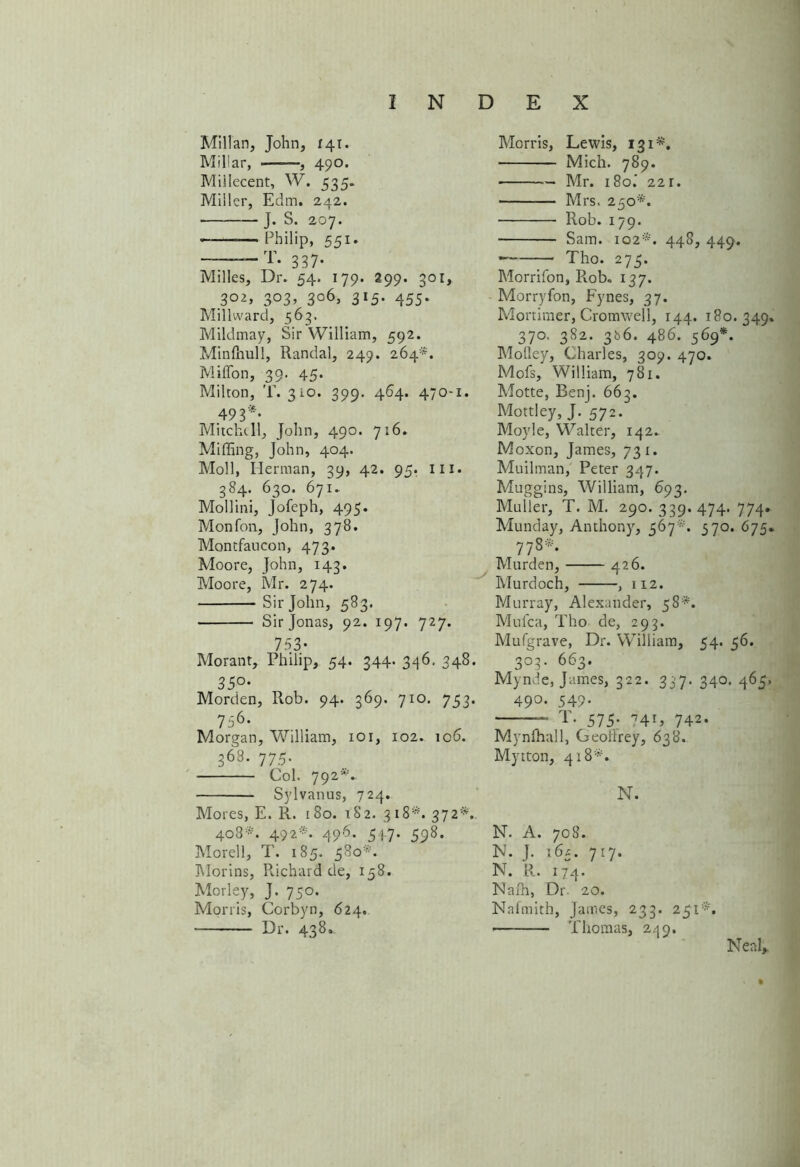 INDEX
Millan, John, 141.
Millar, ———, 490.
Millecent, W. 535.
Miller, Edm. 242.
——— J. S. 207.
——— Philip, 551.
——— T. 337.
Milles, Dr. 54. 179. 299. 301,
302, 303, 306, 315. 455.
Millward, 563.
Mildmay, Sir William, 592.
Minſhull, Randal, 249. 264*.
Miſſon, 39. 45.
Milton, T. 310. 399. 464. 470-1.
493*.
Mitchell, John, 490. 716.
Miſſing, John, 404.
Moll, Herman, 39, 42. 95. 111.
384. 630. 671.
Mollini, Joſeph, 495.
Monſon, John, 378.
Montfaucon, 473.
Moore, John, 143.
Moore, Mr. 274.
——— Sir John, 583.
——— Sir Jonas, 92. 197. 727.
753.
Morant, Philip, 54. 344. 346. 348.
350.
Morden, Rob. 94. 369. 710. 753.
756.
Morgan, William, 101, 102. 106.
368. 775.
——— Col. 792*.
——— Sylvanus, 724.
Mores, E. R. 180. 182. 318*. 372*.
408*. 492*. 496. 547. 598.
Morell, T. 185. 580*.
Morins, Richard de, 158.
Morley, J. 750.
Morris, Corbyn, 624.
——— Dr. 438.
Morris, Lewis, 131*.
——— Mich. 789.
——— Mr. 180. 221.
——— Mrs. 250*.
——— Rob. 179.
——— Sam. 102*. 448, 449.
——— Tho. 275.
Morriſon, Rob. 137.
Morryſon, Fynes, 37.
Mortimer, Cromwell, 144. 180. 349.
370. 382. 386. 486. 569*.
Moſley, Charles, 309. 470.
Moſs, William, 781.
Motte, Benj. 663.
Mottley, J. 572.
Moyle, Walter, 142.
Moxon, James, 731.
Muilman, Peter 347.
Muggins, William, 693.
Muller, T. M. 290. 339. 474. 774.
Munday, Anthony, 567*. 570. 675.
778*.
Murden, ——— 426.
Murdoch, ———, 112.
Murray, Alexander, 58*.
Muſca, Tho de, 293.
Muſgrave, Dr. William, 54. 56.
303. 663.
Mynde, James, 322. 337. 340. 465,
490. 549.
——— T. 575. 741, 742.
Mynſhall, Geoffrey, 638.
Mytton, 418*.
N.
N. A. 708.
N. J. 165. 717.
N. R. 174.
Naſh, Dr. 20.
Naſmith, James, 233. 251*.
——— Thomas, 249.
Neal,